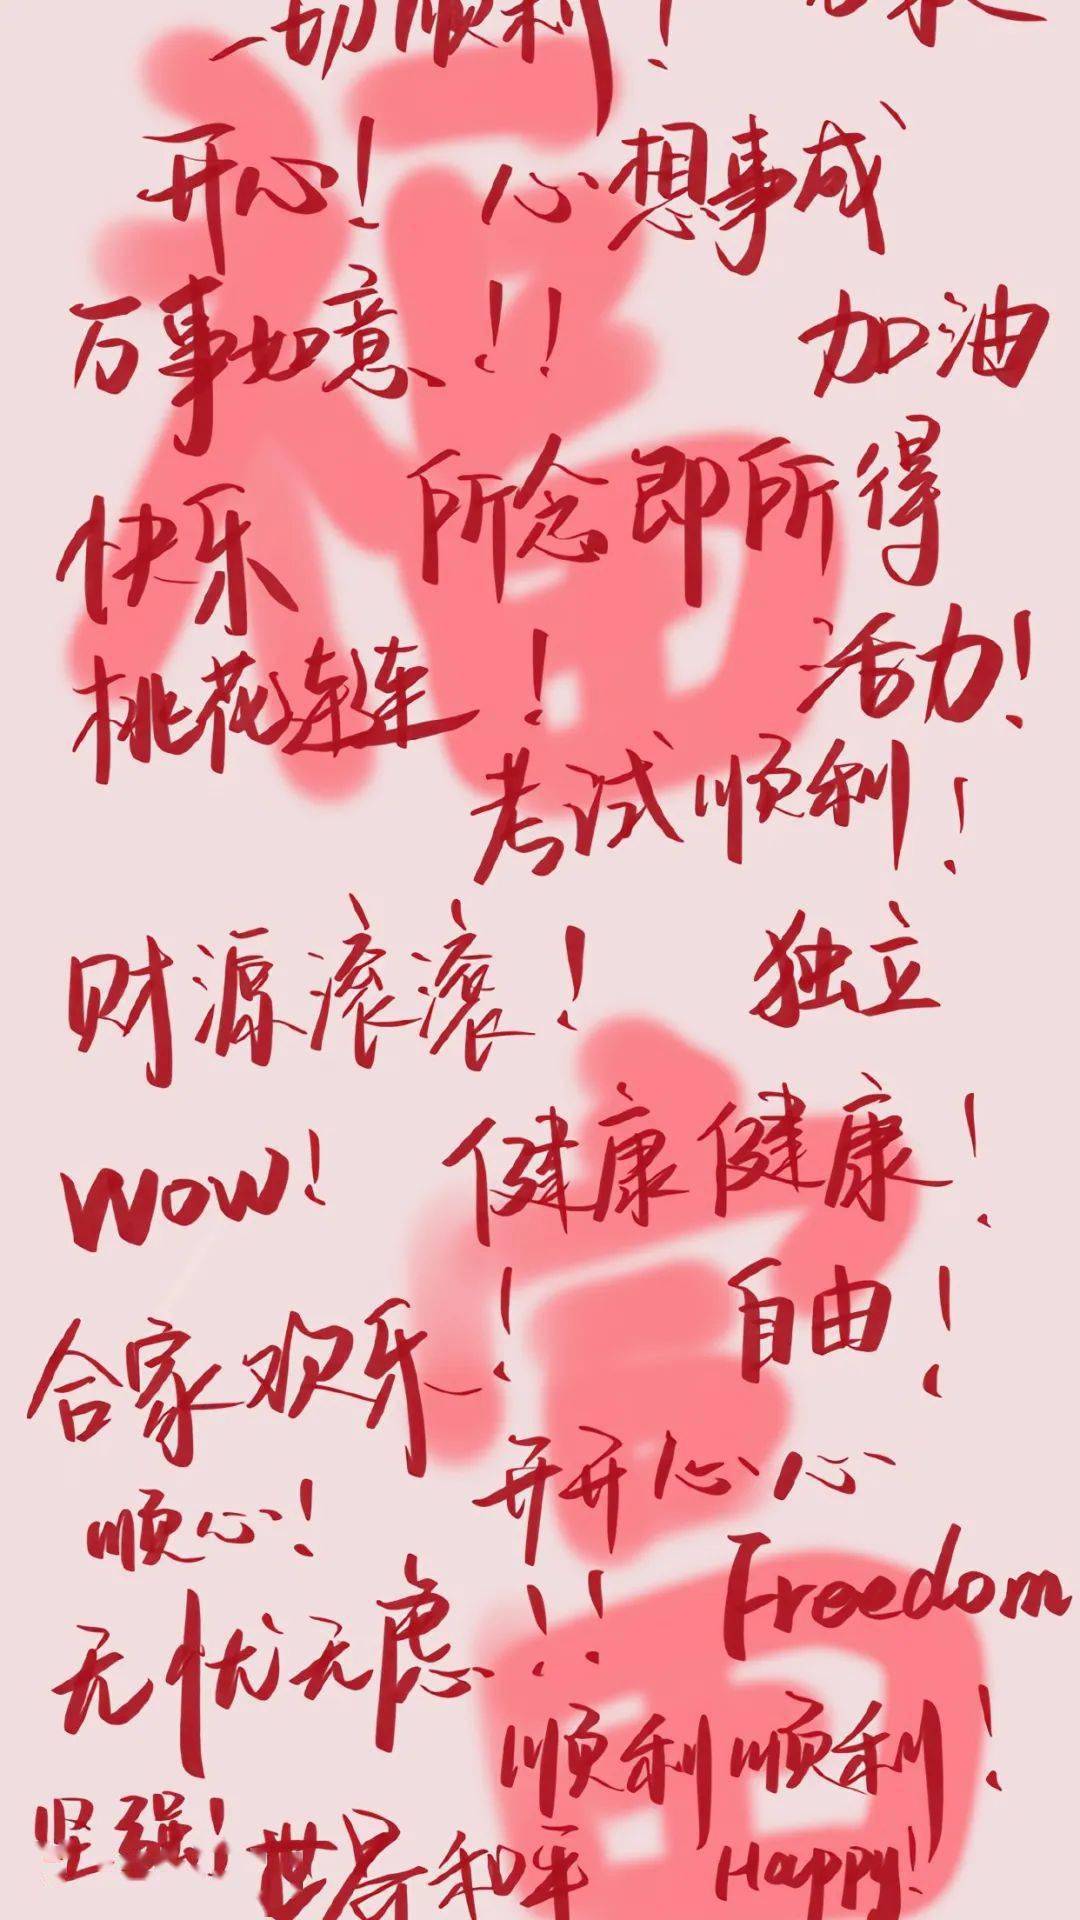 一切顺利！
开心！ 心想事成
万事如意！！ 加油
所念即所得
快乐
桃花连连！ 活力！
考试顺利！
财源滚滚！ 独立
wow! 健康健康！
自由！
合家欢乐！
开开心心
顺心！
Freedom
无忧无虑！！
顺利顺利！
坚强！ 世界和平 Happy!
福富